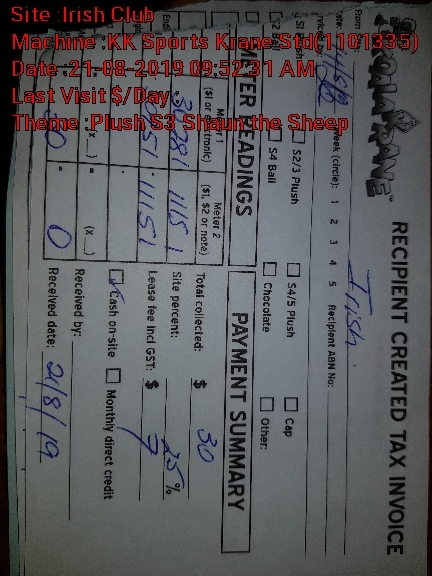 Site :Irish Club
Machine :KK Sports Krane Std(1101335)
Date :21-08-2019 09:52:31 AM
Last Visit $/Day
Theme :Plush S3 Shaun the Sheep
KOALA KRANE
RECIPIENT CREATED TAX INVOICE
Irish
Week (circle): 1 2 3 4 5 Recipient ABN No:
S2/3 Plush S4/5 Plush Cap
S2 Ball S4 Ball Chocolate Other:
METER READINGS
Meter 1 Meter 2
($1 or ($1, $2 or note)
11151
11151
(x )
= 0
PAYMENT SUMMARY
Total collected: $ 30
Site percent: 25%
Lease fee incl GST: $ 7
Cash on-site Monthly direct credit
Received by:
Received date: 21/8/19